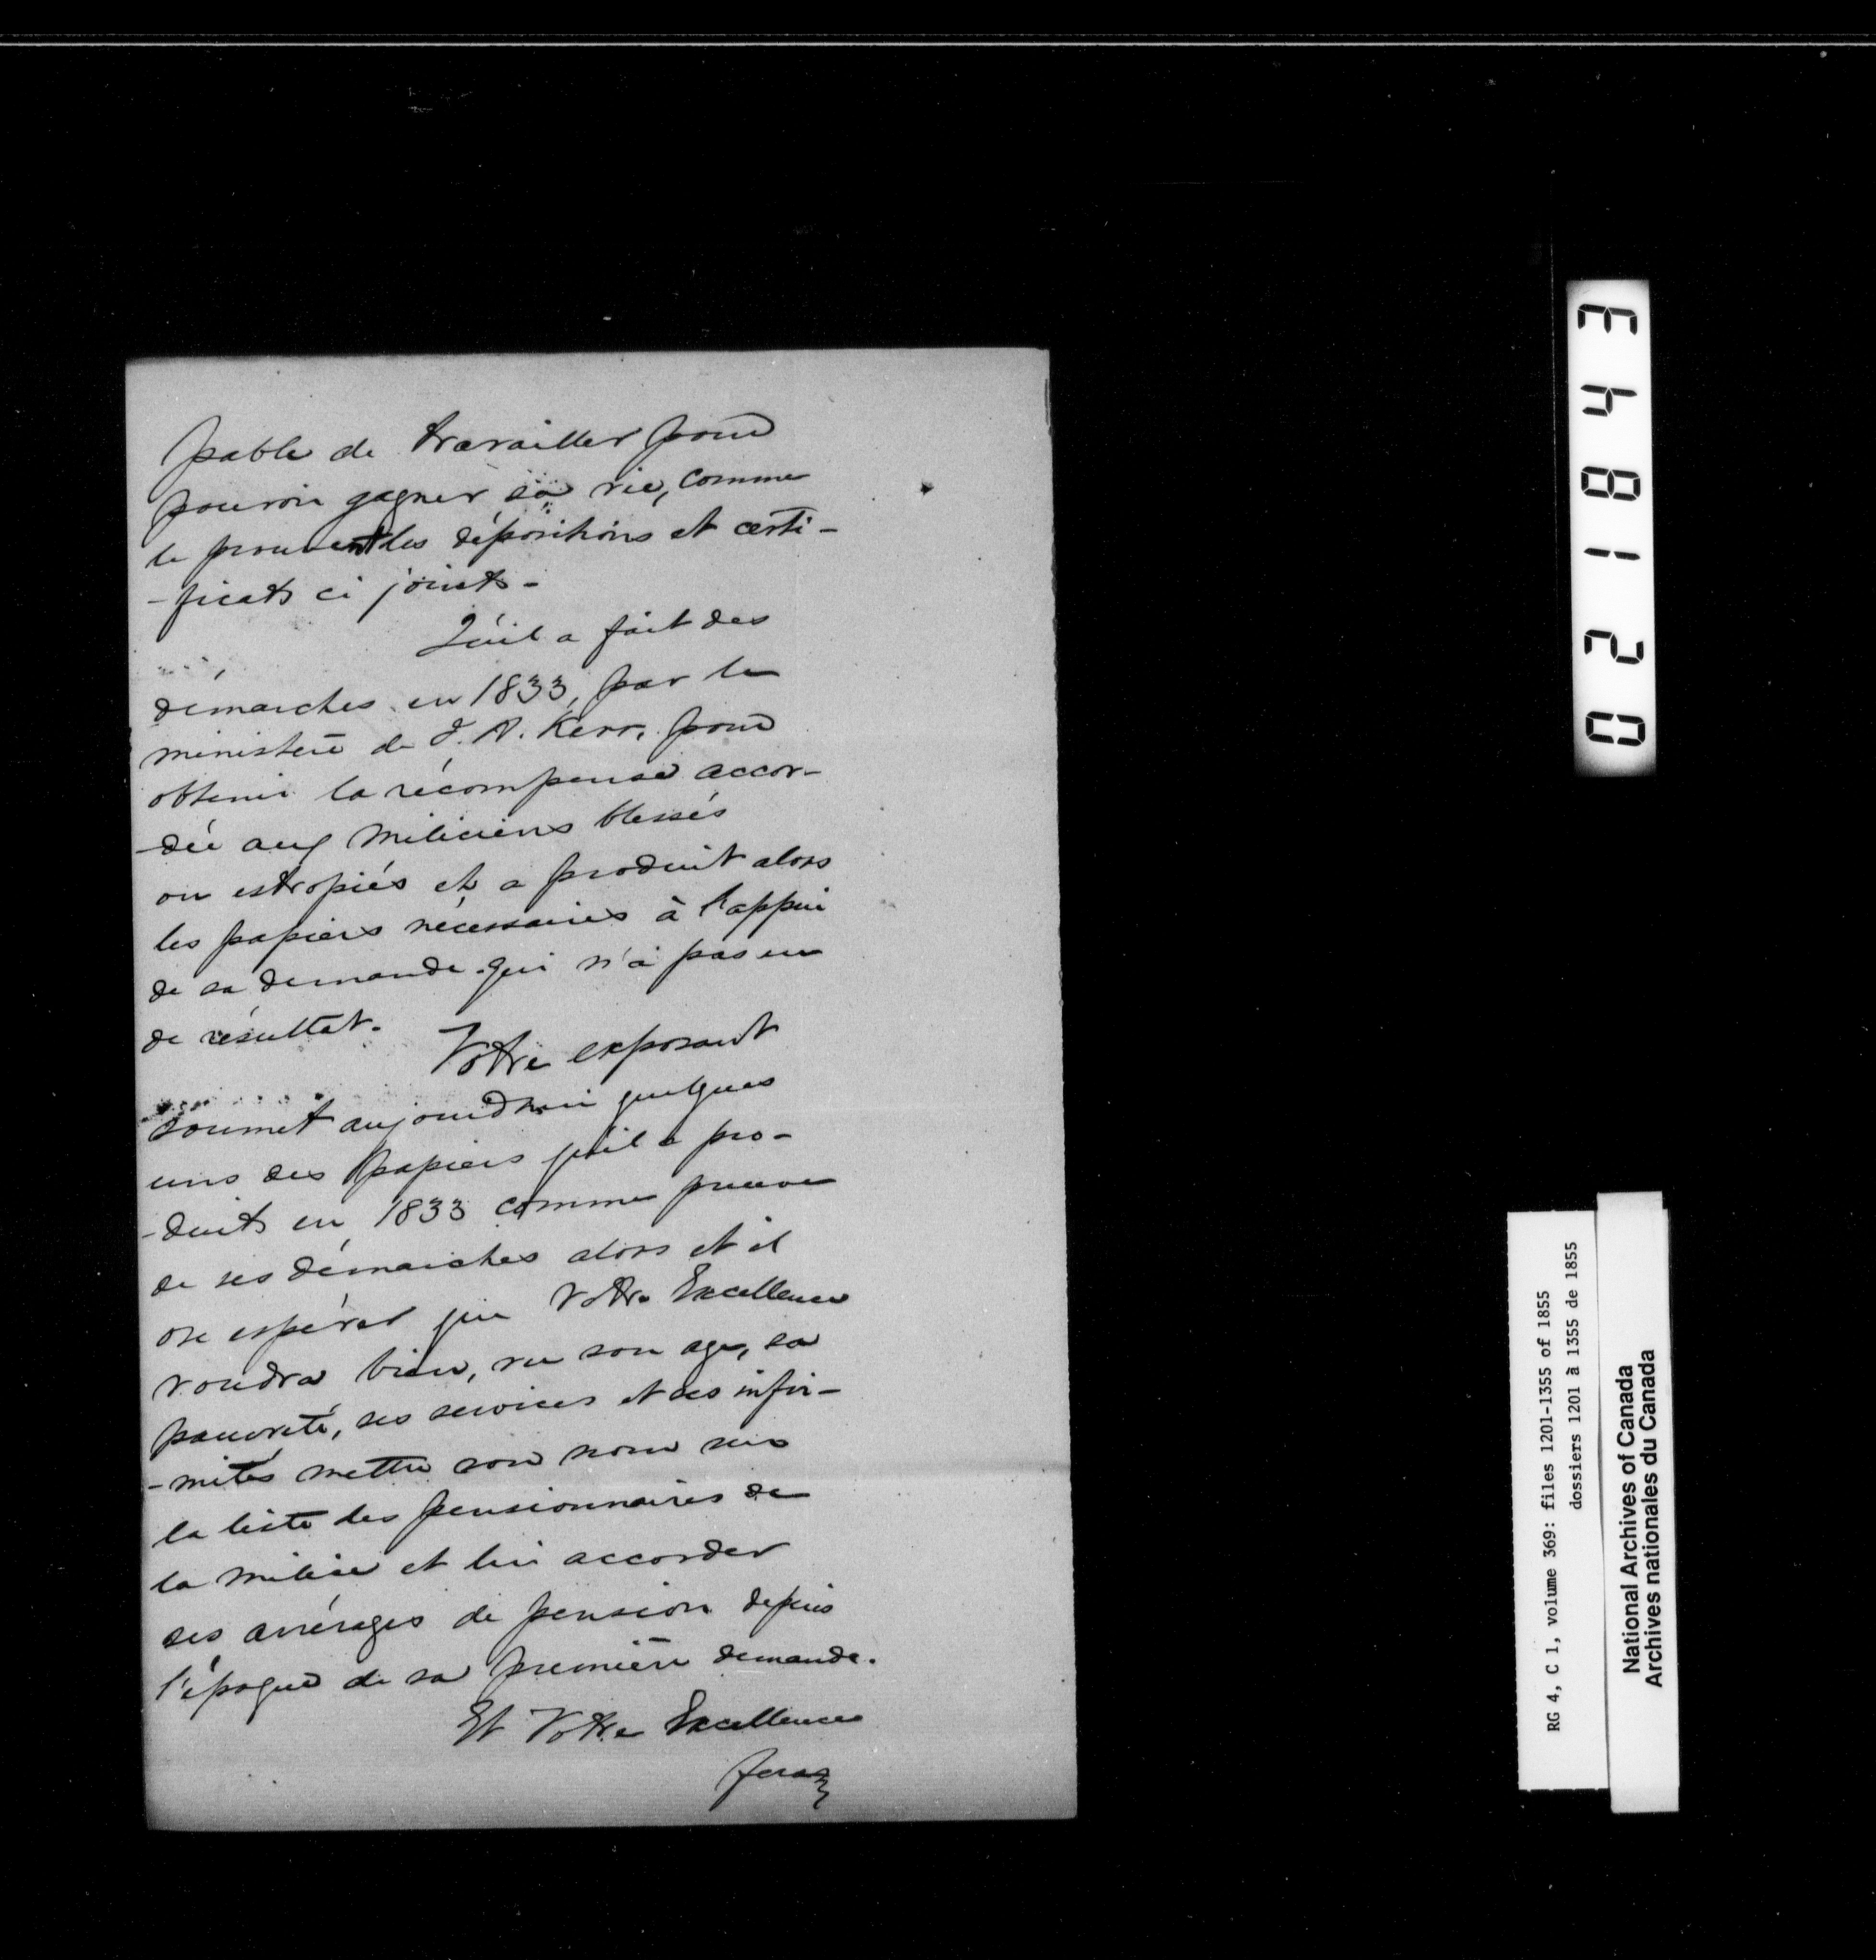 pable de travailler pour
pouvoir gagner sa vie, comme
le prouvent les dépositions et certi-
-ficats ci joints-
Qu'il a fait des
démarches en 1833, par le
ministère de J. A. Kerr, pour
obtenir la récompense accor-
-dée aux Miliciens blessés
ou estropiés et a produit alors
les papiers nécessaires à l'appui
de sa demande qui n'a pas eu
de résultat.
Votre exposant
soumet aujourdhui quelques
uns des papiers qu'il a pro-
-duits en 1833 comme preuve
de ses démarches alors et il
ose espérer que Votre Excellence
voudra bien, vu son age, sa
pauvreté, ses services et ses infir-
-mités mettre son nom sur
la liste des pensionnaires de
la milice et lui accorder
ses arrérages de pension depuis
l'époque de sa première demande.
Et Votre Excellence
ferez
0218143
RG 4, C 1, volume 369: files 1201-1355 of 1855
dossiers 1201 à 1355 de 1855
National Archives of Canada
Archives nationales du Canada